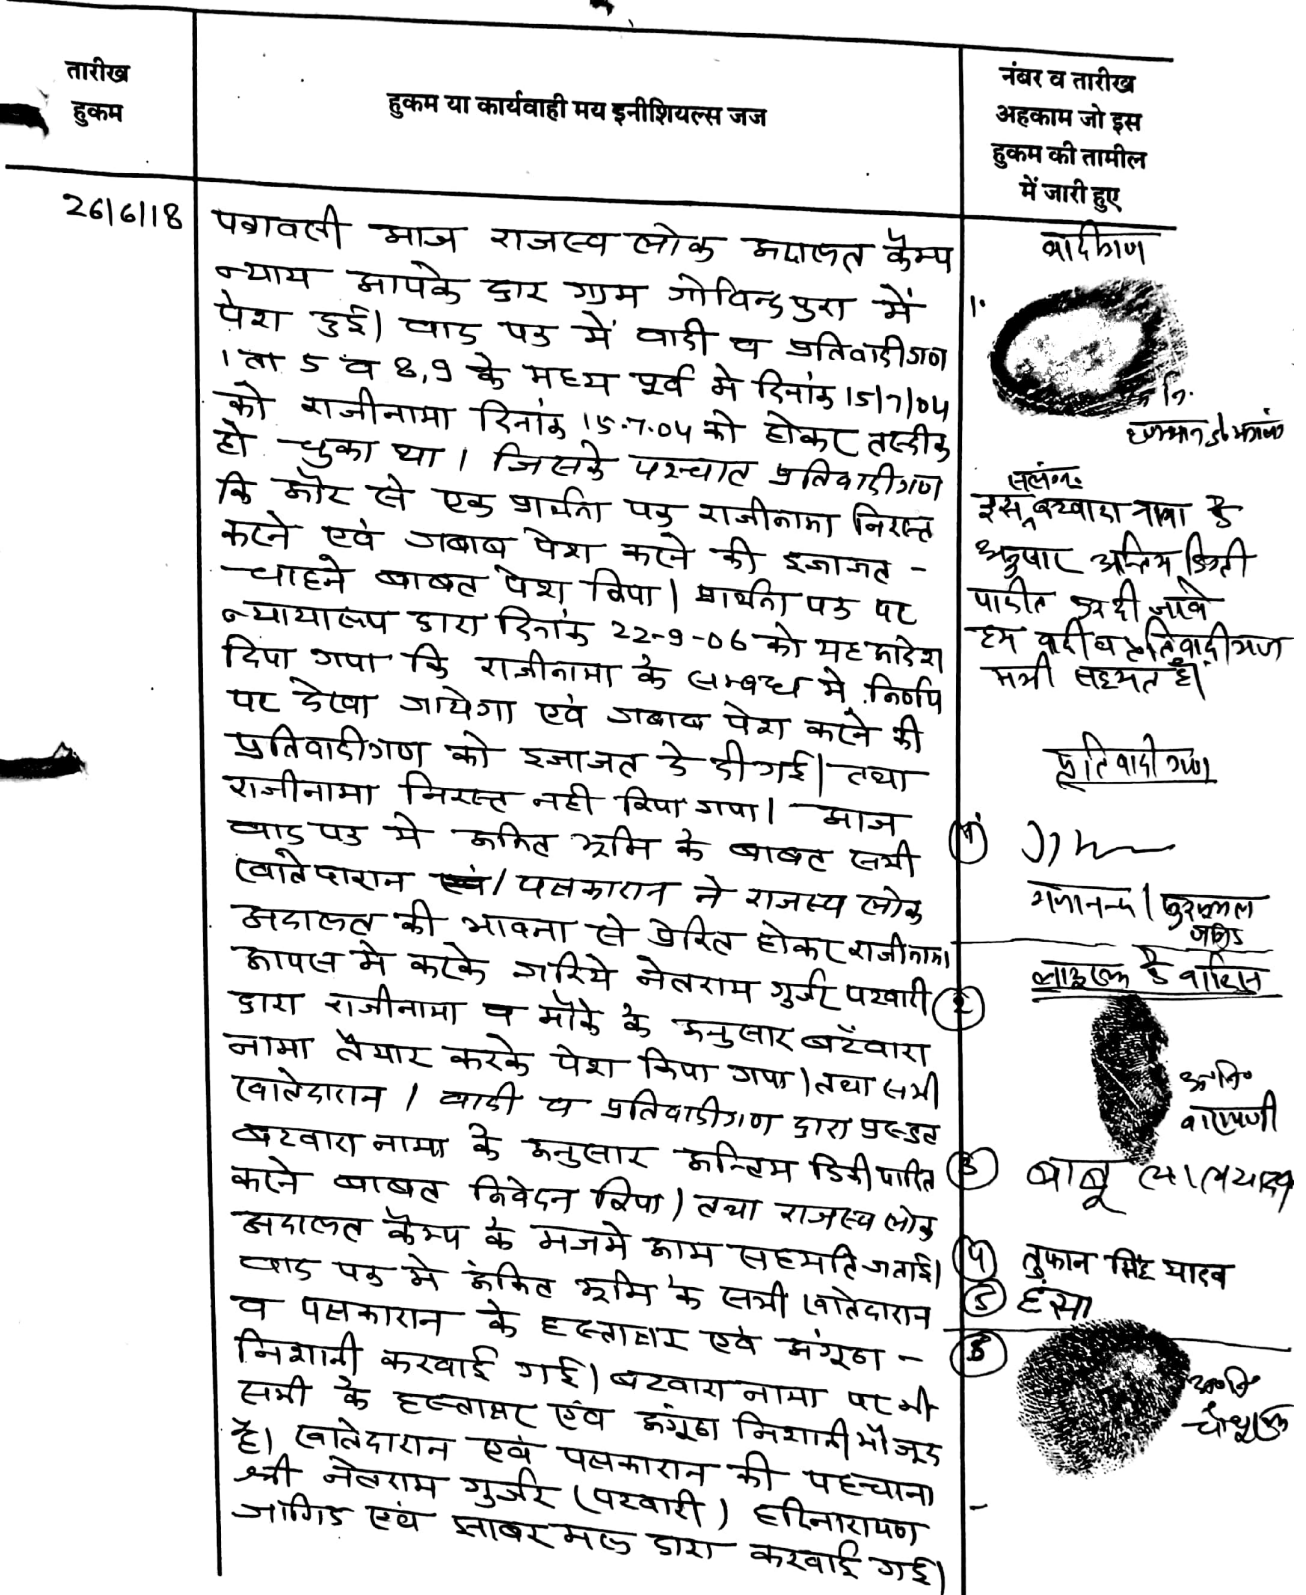 तारीख
हुकम
हुकम या कार्यवाही मय इनीशियल्स जज
नंबर व तारीख
अहकाम जो इस
हुकम की तामील
में जारी हुए
26/6/18
पत्रावली आज राजस्व लोक अदालत कैम्प
न्याय आपके द्वार ग्राम गोविन्दपुरा में
पेश हुई। वाद पत्र में वादी व प्रतिवादीगण
1 ता 5 व 8,9 के मध्य पूर्व मे दिनांक 15/7/04
को राजीनामा दिनांक 15.7.04 को होकर तस्दीक
हो चुका था। जिसके पश्चात प्रतिवादीगण
कि और से एक प्रार्थना पत्र राजीनामा निरस्त
करने एवं जबाब पेश करने की इजाजत -
चाहने बाबत पेश किया। प्रार्थना पत्र पर
न्यायालय द्वारा दिनांक 22-9-06 को यह आदेश
दिया गया कि राजीनामा के सम्बन्ध मे निर्णय
पर देखा जायेगा एवं जबाब पेश करने की
प्रतिवादीगण को इजाजत दे दी गई। तथा
राजीनामा निरस्त नही किया गया। आज
वाद पत्र मे अंकित भूमि के बाबत सभी
खातेदारान / पक्षकारान ने राजस्व लोक
अदालत की भावना से प्रेरित होकर राजीनामा
आपस मे करके जरिये नेतराम गुर्जर पटवारी
द्वारा राजीनामा व मौके के अनुसार बटॅवारा
नामा तैयार करके पेश किया गया। तथा सभी
खातेदारान / वादी व प्रतिवादीगण द्वारा प्रस्तुत
बटवारा नामा के अनुसार अन्तिम डिक्री पारित
करने बाबत निवेदन किया। तथा राजस्व लोक
अदालत कैम्प के मजमे आम सहमति जताई।
वाद पत्र मे अंकित भूमि के सभी खातेदारान
व पक्षकारान के हस्ताक्षर एवं अंगूठा -
निशानी करवाई गई। बटवारा नामा पर भी
सभी के हस्ताक्षर एंव अंगूठा निशानी मौजूद
है। खातेदारान एवं पक्षकारान की पहचाना
श्री नेतराम गुर्जर (पटवारी) हरिनारायण -
जांगिड एवं झाबरमल द्वारा करवाई गई।
वादीगण
1.
नि.
संलग्न
इस बटवारा नामा के
अनुसार अन्तिम डिक्री
पारीत कर दी जावे
हम वादी व प्रतिवादीगण
सभी सहमत है।
प्रतिवादीगण
1
गजानन्द / फुरमल
जांगिड
2
के वारिसान
अ०नि०
नारायणी
3 बाबू लाल यादव
4 तुफान सिंह यादव
5 हंसा
8
अ०नि०